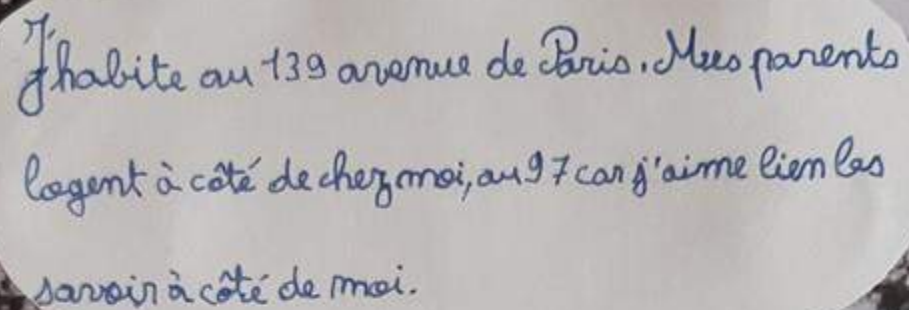 J'habite au 139 avenue de Paris. Mes parents
logent à côté de chez moi, au 97 car j'aime bien les
savoir à côté de moi.